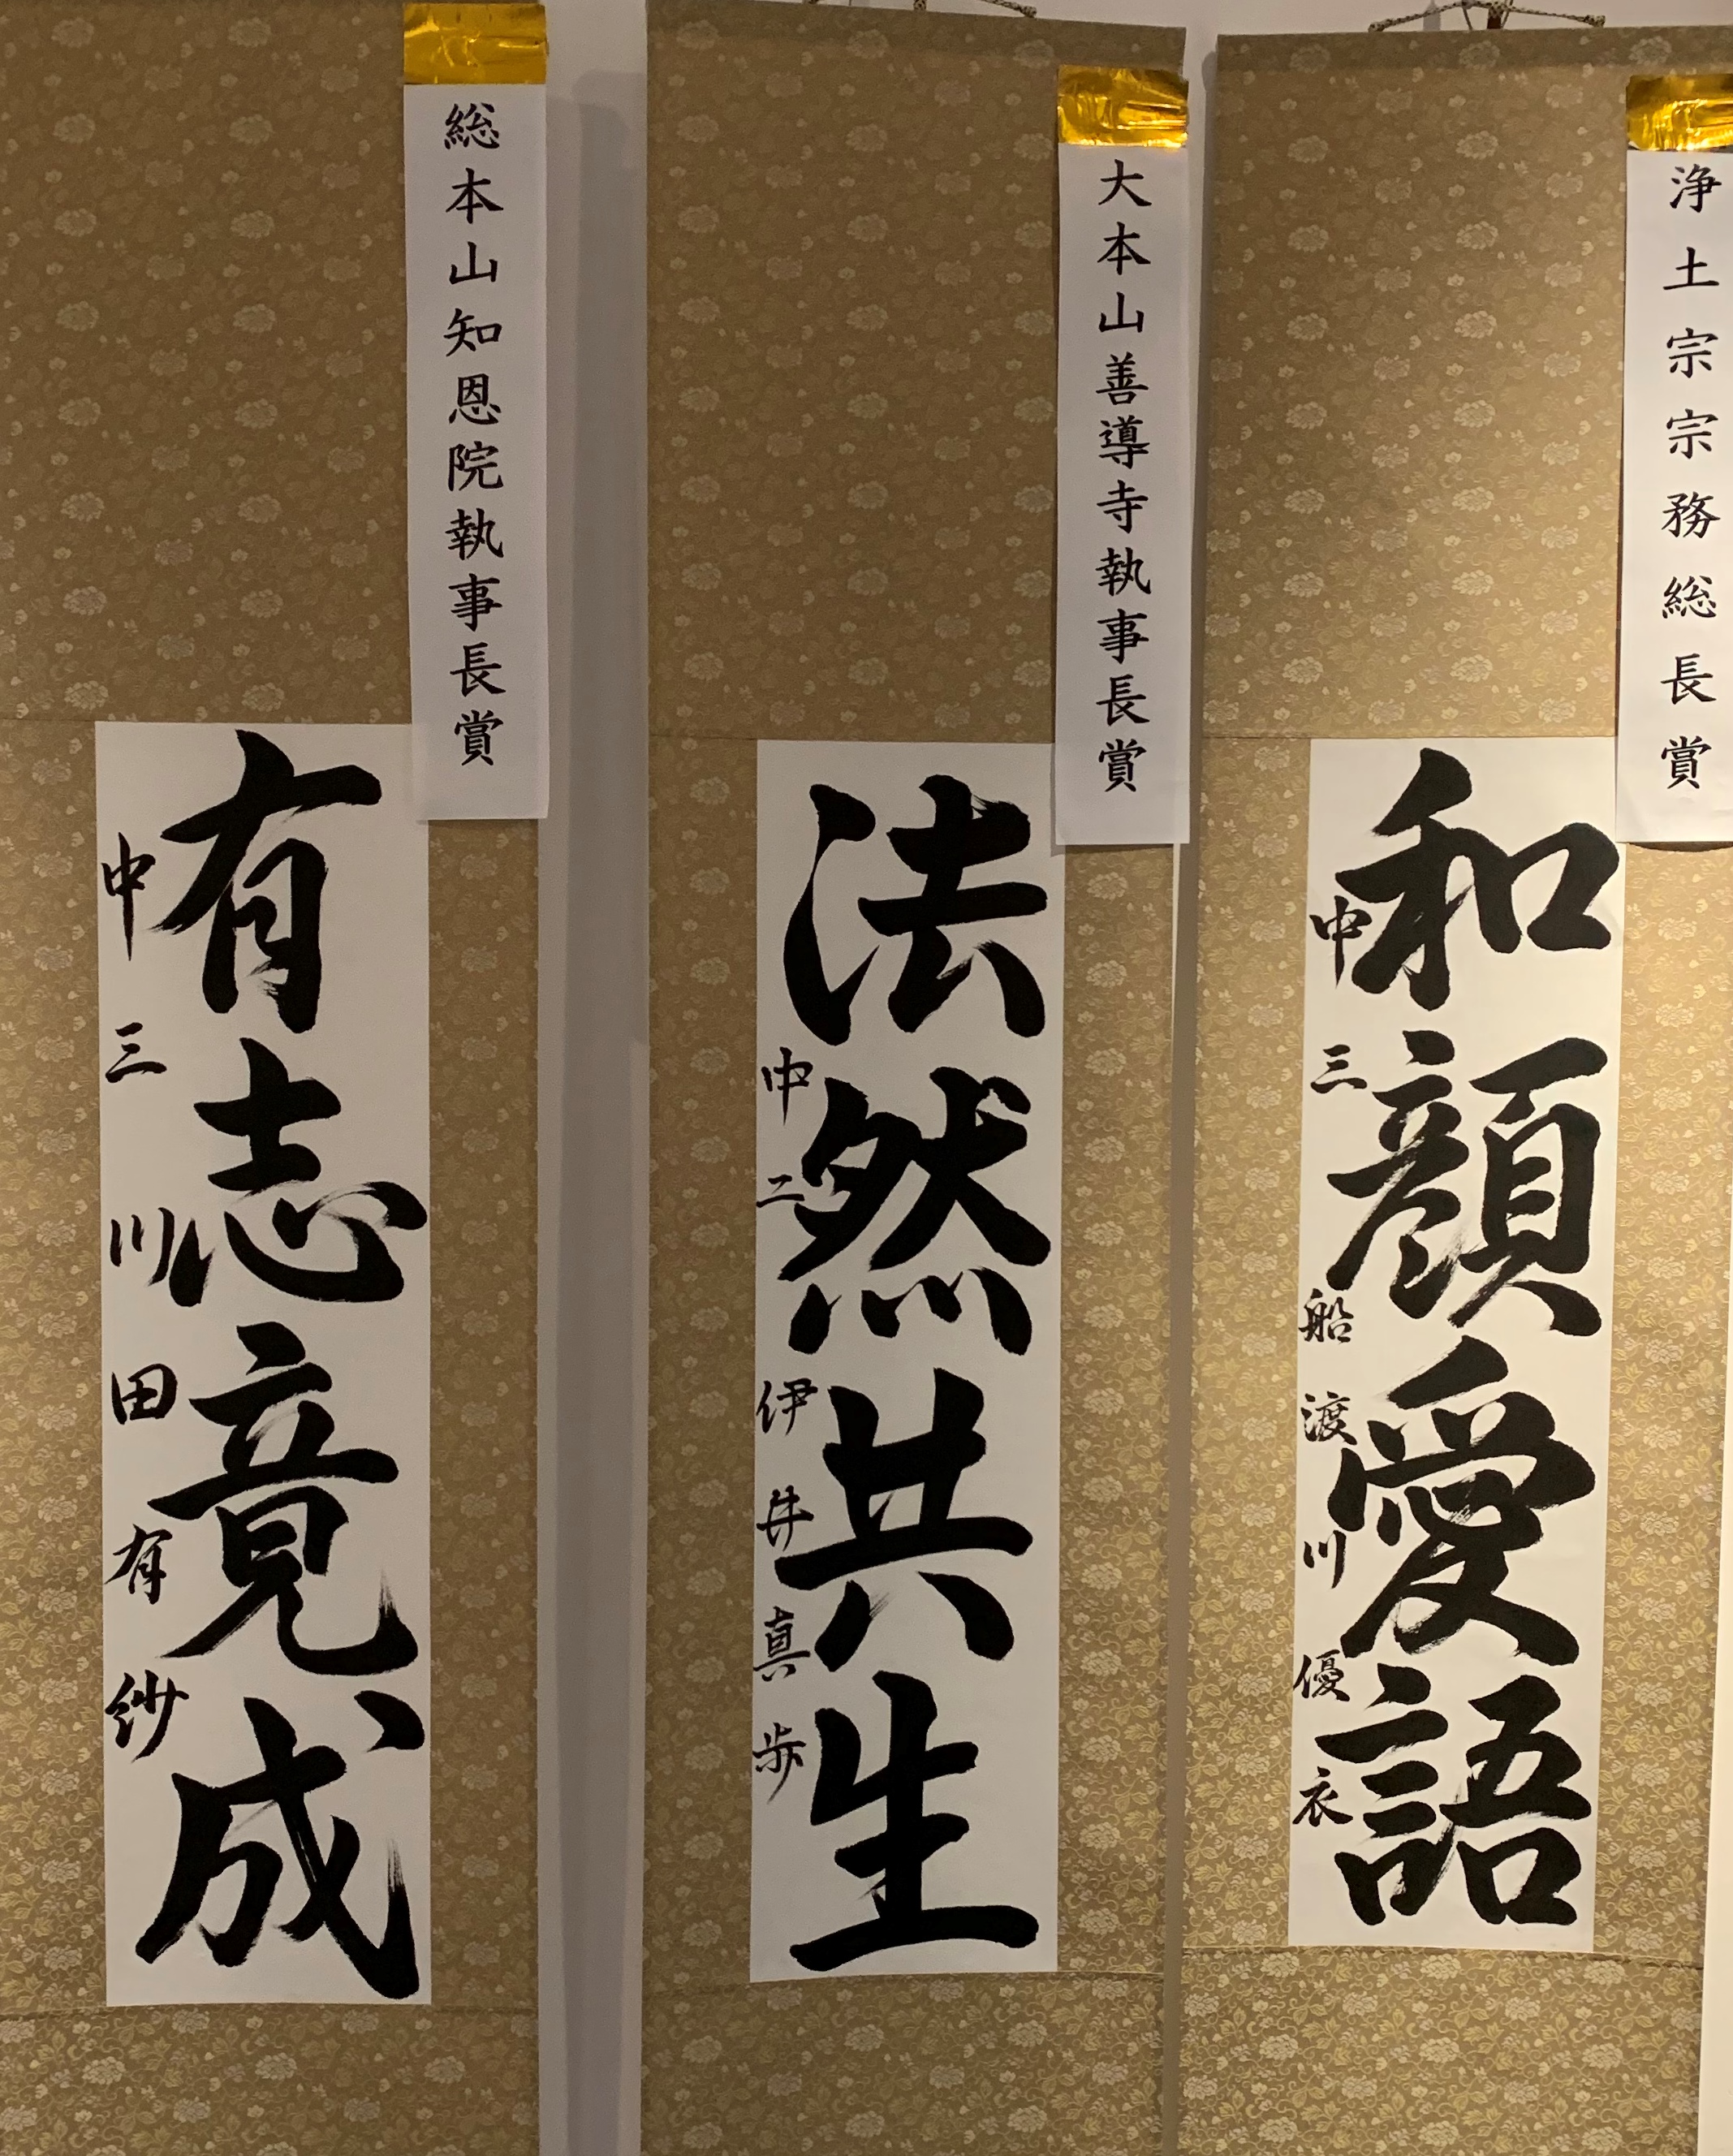 浄土宗宗務総長賞
和顔愛語
中三 船渡川優衣
大本山善導寺執事長賞
法然共生
中二 伊井真歩
総本山知恩院執事長賞
有志竟成
中三 川田有紗